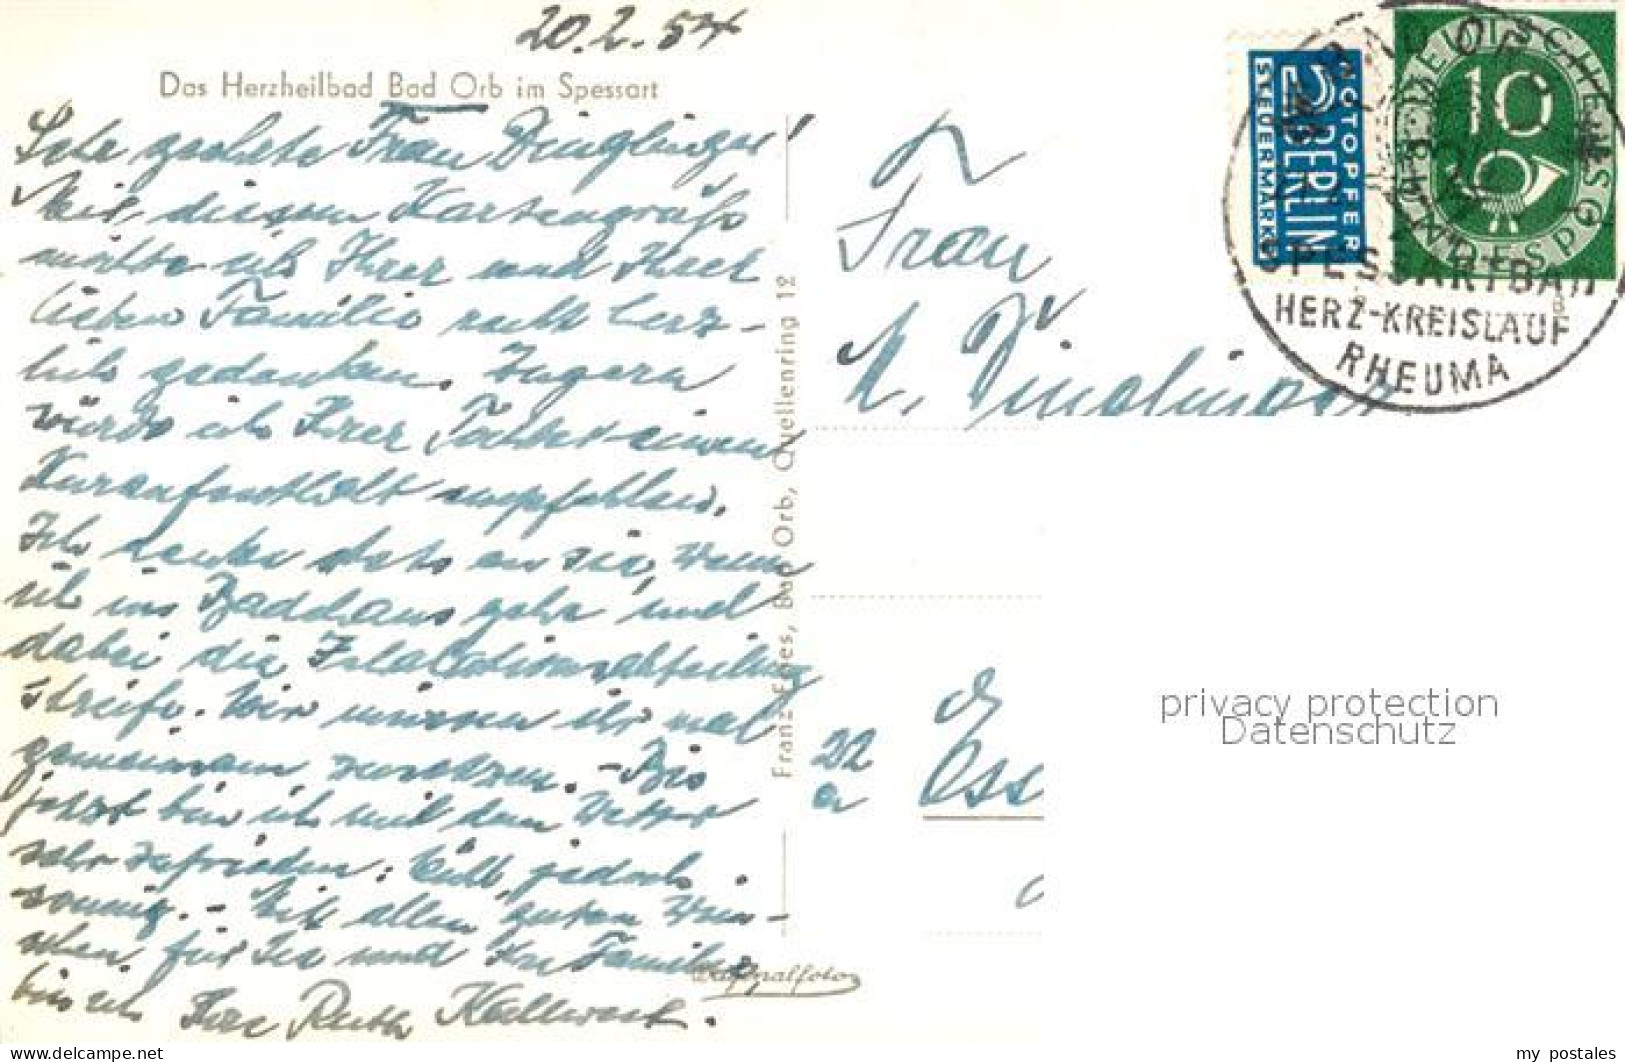 20.2.54
Das Herzheilbad Bad Orb im Spessart
Sehr geehrte Frau Dinglinger!
Mit diesem Kartengruß
möchte ich Ihrer und Ihrer
lieben Familie recht herz-
lich gedenken. Zu gern
würde ich Ihrer Tochter einen
Kuraufenthalt empfehlen.
Ich denke stets an sie, wenn
ich ins Badehaus gehe und
dabei die Inhalationsabteilung
streife. Wir müssen ihr mal
gemeinsam zusetzen. - Bis
jetzt bin ich mit dem Wetter
sehr zufrieden: kalt, jedoch
sonnig. - Mit allen guten Wün-
schen für Sie und Ihre Familie
bin ich Ihre Ruth Kallwest.
Franz Eges, Bad Orb, Quellenring 12
Originalfoto
NOTOPFER
2 BERLIN
STEUERMARKE
DEUTSCHE BUNDESPOST
10
BAD ORB
SPESSARTBAD
HERZ-KREISLAUF
RHEUMA
Frau
A. Dinglinger
22
a
Ess
privacy protection
Datenschutz
www.delcampe.net
my_postales